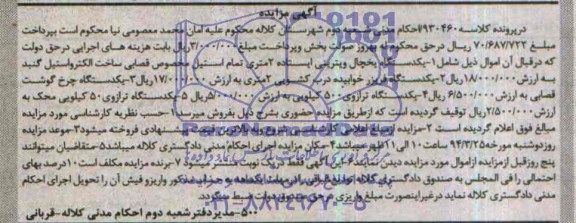 آگهی مزایده
درپرونده کلاسه ۹۳۰۴۶۰/احکام مدنی دوم شهرستان کلاله محکوم علیه امان محمد معصومی نیا محکوم است بپرداخت
مبلغ ۷۰/۶۸۷/۷۲۲ ریال درحق محکوم له بهروز سولت بخش وپرداخت مبلغ ۳/۰۰۰/۰۰۰ریال بابت هزینه های اجرایی درحق دولت
که درقبال آن اموال ذیل شامل ۱-یکدستگاه یخچال ویترینی ایستاده ۲متری تمام استیل مخصوص قصابی ساخت الکترواستیل گنبد
به ارزش ۱۸/۰۰۰/۰۰۰ریال ۲-یکدستگاه فریزر خوابیده درب کشویی ۲متری به ارزش ۱۷/۰۰۰/۰۰۰ریال ۳-یکدستگاه چرخ گوشت
قصابی به ارزش ۶/۵۰۰/۰۰۰ ریال ۴-یکدستگاه ترازوی ۵۰۰کیلویی به ارزش ۵/۰۰۰/۰۰۰ریال ۵-یکدستگاه ترازوی ۵۰ کیلویی محک به
ارزش ۲/۵۰۰/۰۰۰ریال توقیف گردیده است که ازطریق مزایده حضوری بشرح ذیل بفروش میرسد ۱-حسب نظریه کارشناسی مورد مزایده
مبالغ فوق اعلام گردیده است ۲-مزایده از مبلغ اعلام کارشناسی فروخته میشود ۳-موعد مزایده
روزدوشنبه مورخه ۹۴/۳/۲۵ ساعت ۱۰ الی ۱۱ ظهر میباشد ۴-مکان مزایده اجرای احکام مدنی دادگستری کلاله میباشد ۵-متقاضیان میتوانند
پنج روزقبل ازمزایده ازاموال مورد مزایده دیدن نمایند ۶-این آگهی فقط دریک نوبت ۷-برنده مزایده مکلف است ۱۰درصد بهای
احتمالی را فی المجلس به صندوق دادگستری کلاله تودیع واریزو فیش آن را تحویل اجرای احکام
مدنی دادگستری کلاله نماید درغیراینصورت مبلغ واریزی
۵۰۰-مدیردفترشعبه دوم احکام مدنی کلاله-قربانی
۰۲۱-۸۸۳۴۹۶۷۰-۵